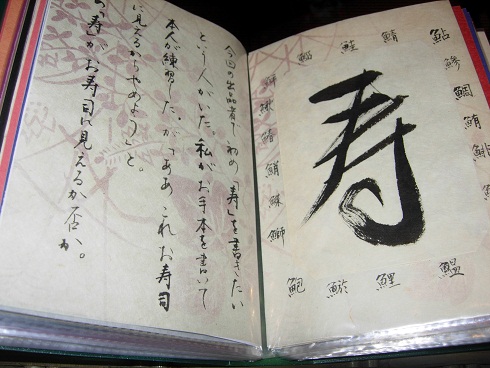 寿
鮎
鯵
鯛
鮪
鯖
鮭
鰍
鰆
鰤
鮑
鯉
鰮
今回の出品者で「寿」を書きたい
という人がいた。私がお手本を書いて
本人が練習した。が「ああ、これお寿司
に見えるからやめよう」と。
の「寿」がお寿司に見えるか否か。